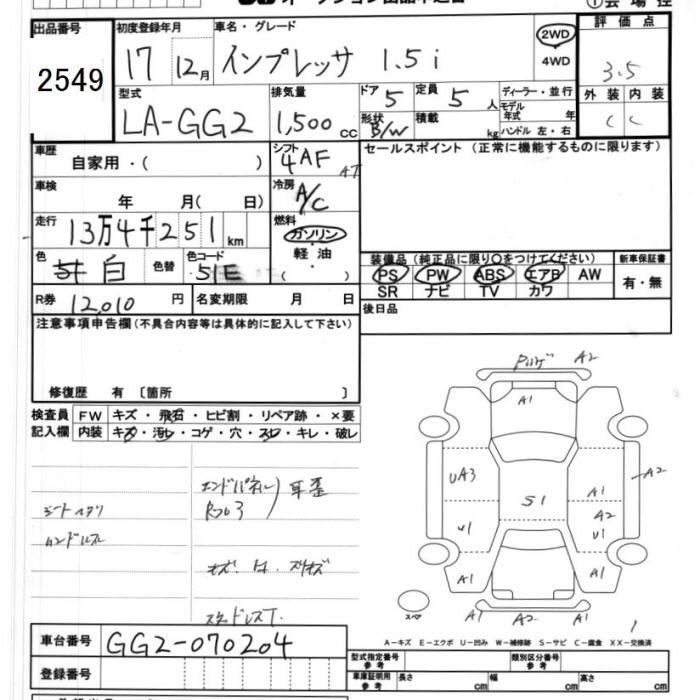 出品番号
2549
初度登録年月
17 12月
車名・グレード
インプレッサ 1.5i
2WD
4WD
評価点
3.5
外装 内装
C C
型式
LA-GG2
排気量
1,500 cc
ドア 5
定員 5 人
形状 B/W
積載 kg
ディーラー・並行
モデル年式 年
ハンドル 左・右
車歴
自家用・( )
シフト
4AF AT
セールスポイント(正常に機能するものに限ります)
車検
年 月( 日)
冷房
A/C
走行
13万4千251 km
燃料
ガソリン
軽油
( )
色
白
色替
色コード
51E
装備品(純正品に限り〇をつけてください)
PS PW ABS エアB AW
SR ナビ TV カワ
新車保証書
有・無
R券 12,010 円
名変期限 月 日
後日品
注意事項申告欄(不具合内容等は具体的に記入して下さい)
修復歴 有 〔箇所 〕
検査員記入欄
FW キズ・飛石・ヒビ割・リペア跡・×要
内装 キズ・汚レ・コゲ・穴・スレ・キレ・破レ
エンドパネル 耳歪
シートヘタリ
ハンドルスレ
A2
A1
UA3
S1
A1
A2
A2
U1
U1
A1
A1
スペア
A1 A2 A1
A-キズ E-エクボ U-凹み W-補修跡 S-サビ C-腐食 XX-交換済
車台番号
GG2-070204
登録番号
型式指定番号 参考
類別区分番号 参考
車庫証明用 参考
長さ cm
幅 cm
高さ cm